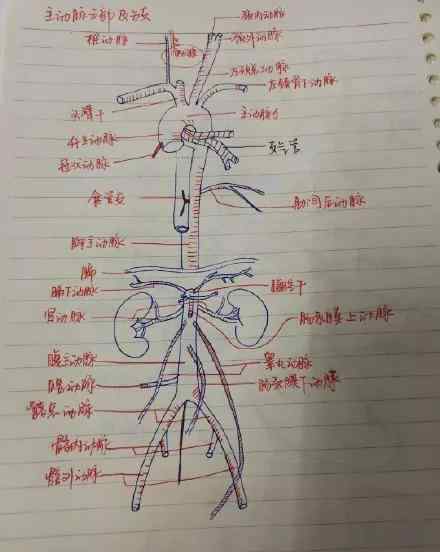 主动脉分部及分支
颈内动脉
椎动脉
颈外动脉
左颈总动脉
左锁骨下动脉
头臂干
主动脉弓
升主动脉
支气管
冠状动脉
食管支
肋间后动脉
胸主动脉
膈
膈下动脉
腹腔干
肾动脉
肠系膜上动脉
腹主动脉
睾丸动脉
腰动脉
肠系膜下动脉
髂总动脉
髂内动脉
髂外动脉